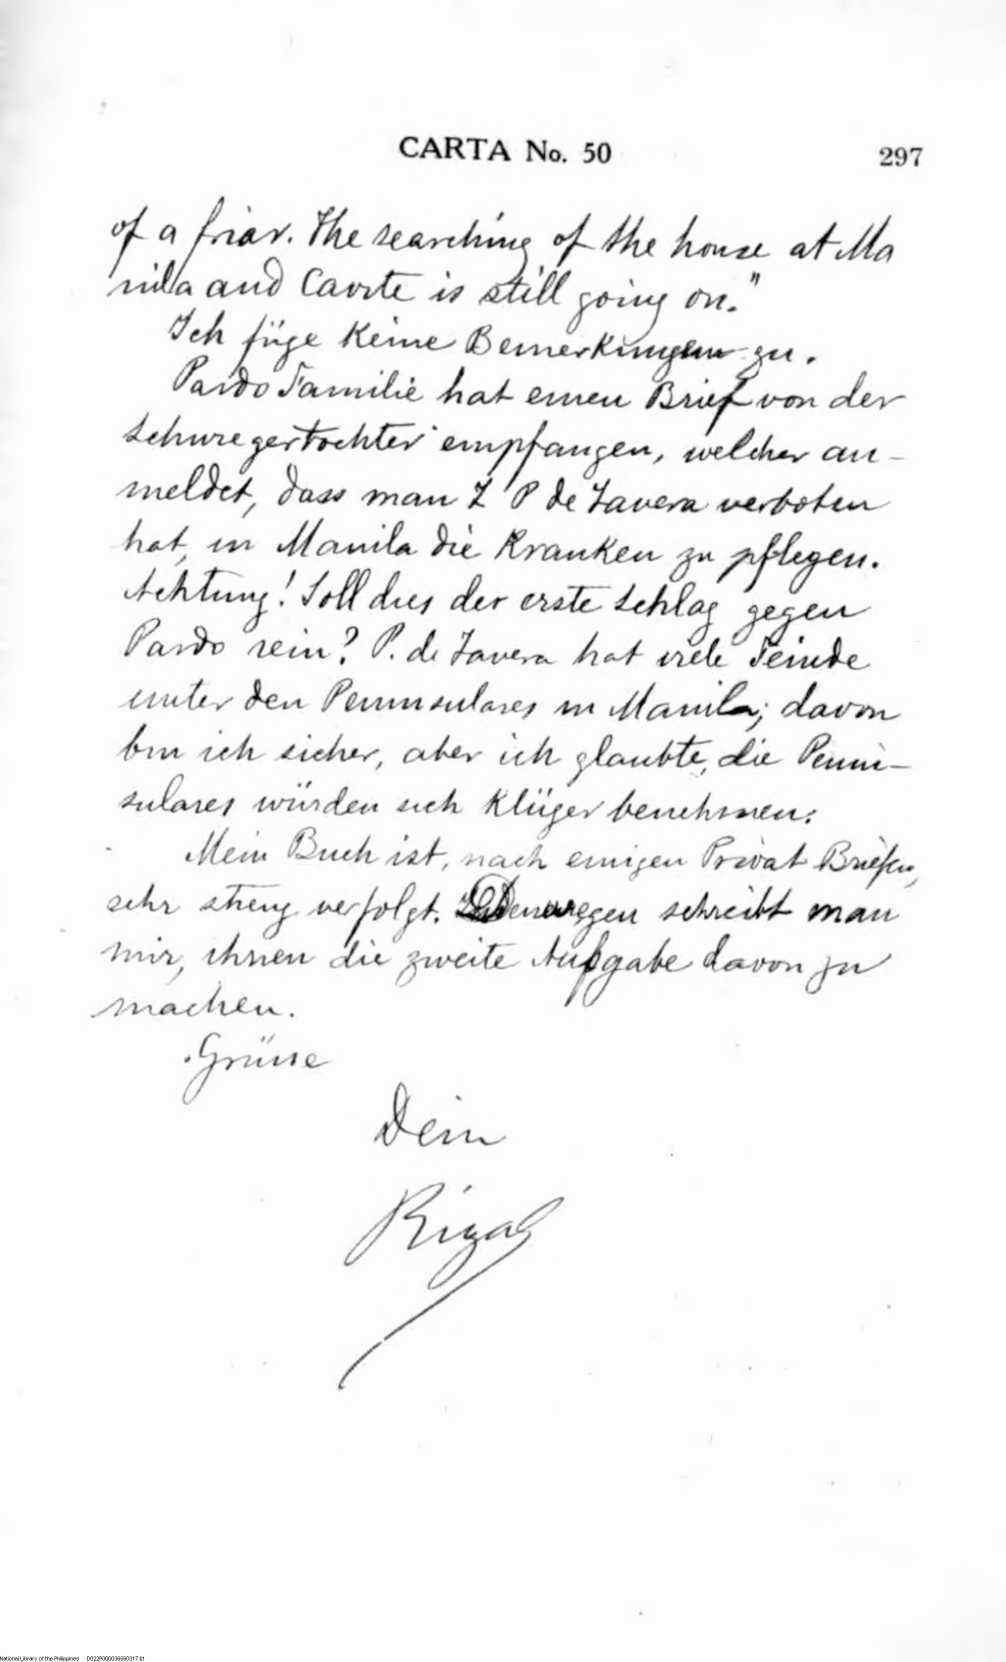 CARTA No. 50
297
of a friar. The searching of the house at Ma
nila and Cavite is still going on."
Ich füge keine Bemerkungen zu.
Pardo Familie hat einen Brief von der
Schwiegertochter empfangen, welcher an-
meldet, dass man T P de Tavera verboten
hat, in Manila die Kranken zu pflegen.
Achtung! Soll dies der erste Schlag gegen
Pardo sein? P. de Tavera hat viele Feinde
unter den Peninsulares in Manila; davon
bin ich sicher, aber ich glaubte, die Penin-
sulares würden sich klüger benehmen.
Mein Buch ist, nach einigen Privat Briefen,
sehr streng verfolgt. schreibt man
mir, ihnen die zweite Aufgabe davon zu
machen.
Grüsse
Dein
Rizal
National Library of the Philippines